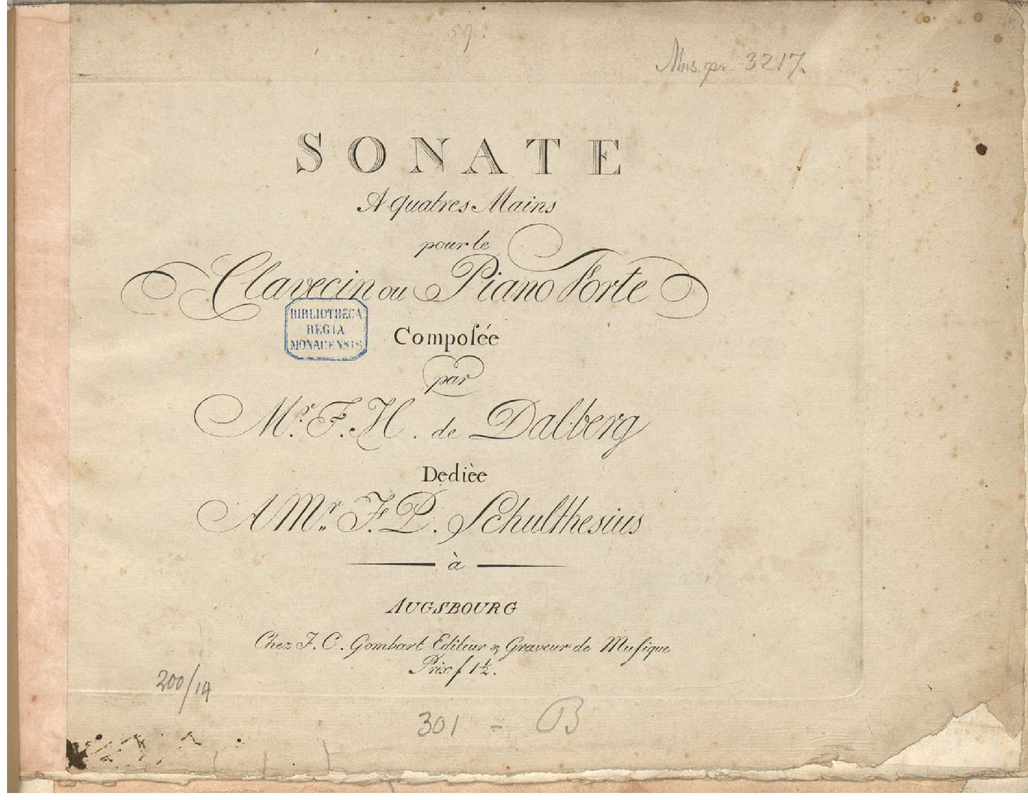 59.
Mus. pr. 3217.
SONATE
A quatres Mains
pour le
Clavecin ou Piano Forte
BIBLIOTHECA
REGIA
MONACENSIS
Composée
par
Mr. F. H. de Dalberg
Dediée
A Mr. F. P. Schulthesius
à
AUGSBOURG
Chez J. C. Gombart Editeur & Graveur de Musique
Prix f 1½.
200/14
301 - B